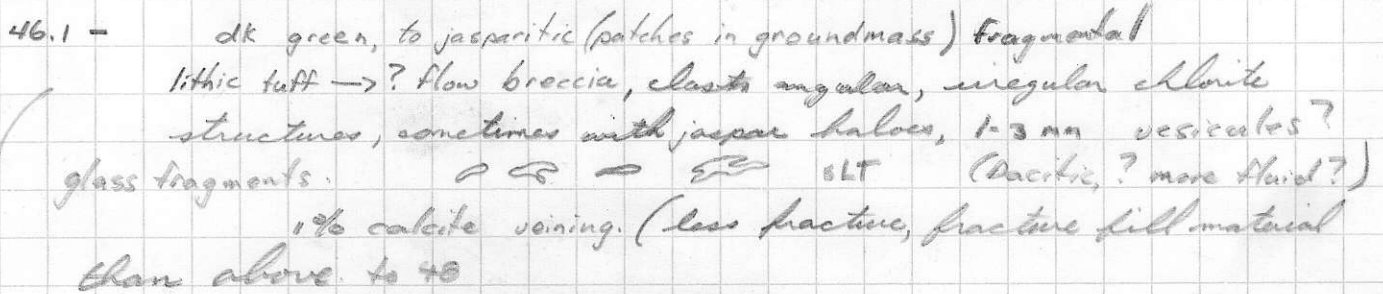 46.1 - dk green, to jasparitic (patches in groundmass) fragmental
lithic tuff → ? flow breccia, clasts angular, irregular chlorite
structures, sometimes with jaspar haloes, 1-3 mm vesicules?
glass fragments. SLT (Dacitic, ? more fluid?)
1% calcite veining. (less fracture, fracture fill material
than above. to 48